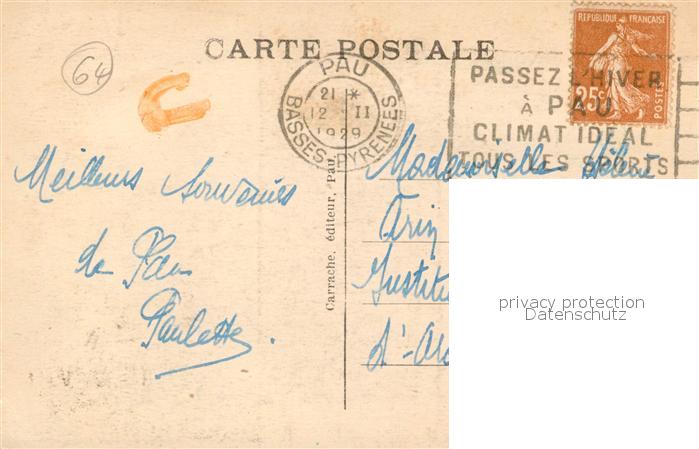 64
CARTE POSTALE
PAU
21 *
12 II
1929
BASSES-PYRENEES
REPUBLIQUE FRANÇAISE
25c
POSTES
PASSEZ L'HIVER
à PAU
CLIMAT IDEAL
TOUS LES SPORTS
Meilleurs Souvenirs
de Pau
Paulette.
Carrache, éditeur, Pau
Mademoiselle Hélène
Institu
d'-Ar
privacy protection
Datenschutz